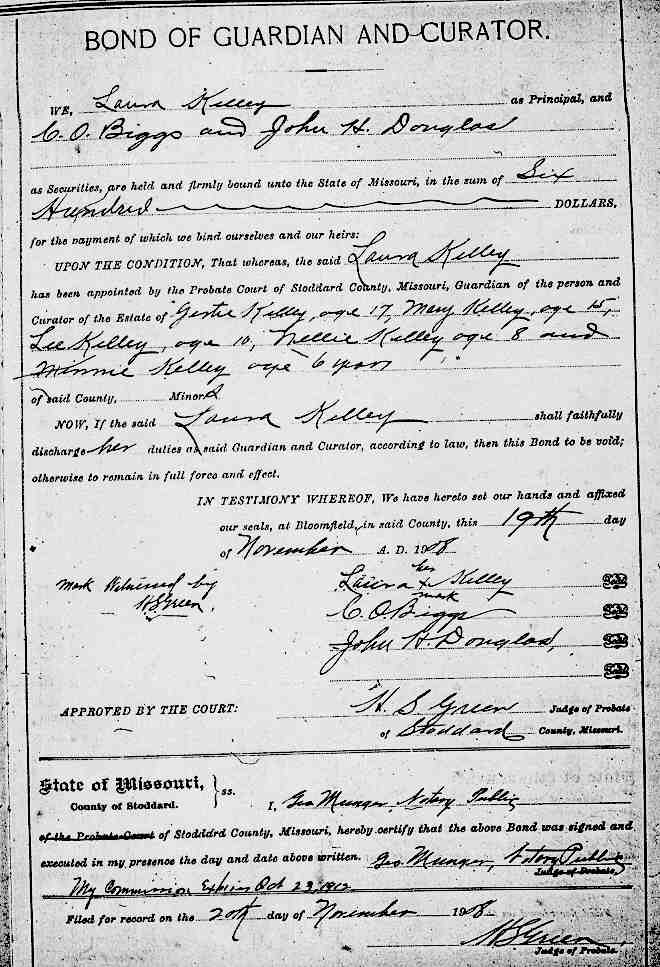 BOND OF GUARDIAN AND CURATOR.
WE, Laura Kelley as Principal, and
C. O. Biggs and John H. Douglas
as Securities, are held and firmly bound unto the State of Missouri, in the sum of Six
Hundred DOLLARS,
for the payment of which we bind ourselves and our heirs:
UPON THE CONDITION, That whereas, the said Laura Kelley
has been appointed by the Probate Court of Stoddard County, Missouri, Guardian of the person and
Curator of the Estate of Gertie Kelley, age 17, Mary Kelley, age 15,
Lee Kelley, age 10, Nellie Kelley age 8 and
Minnie Kelley age 6 years
of said County, Minors
NOW, If the said Laura Kelley shall faithfully
discharge her duties as said Guardian and Curator, according to law, then this Bond to be void;
otherwise to remain in full force and effect.
IN TESTIMONY WHEREOF, We have hereto set our hands and affixed
our seals, at Bloomfield, in said County, this 19th day
of November A. D. 1908
Mark Witnessed by
H S Green.
her
Laura x Kelley Seal
mark
C. O. Biggs Seal
John H. Douglas, Seal
Seal
APPROVED BY THE COURT: H. S. Green Judge of Probate
of Stoddard County, Missouri.
State of Missouri,
County of Stoddard. } ss.
I, Geo Munger, Notary Public
of the Probate Court of Stoddard County, Missouri, hereby certify that the above Bond was signed and
executed in my presence the day and date above written. Geo Munger, Notary Public
Judge of Probate.
My Commission Expires Oct 23, 1912
Filed for record on the 20th day of November 1908
H S Green,
Judge of Probate.